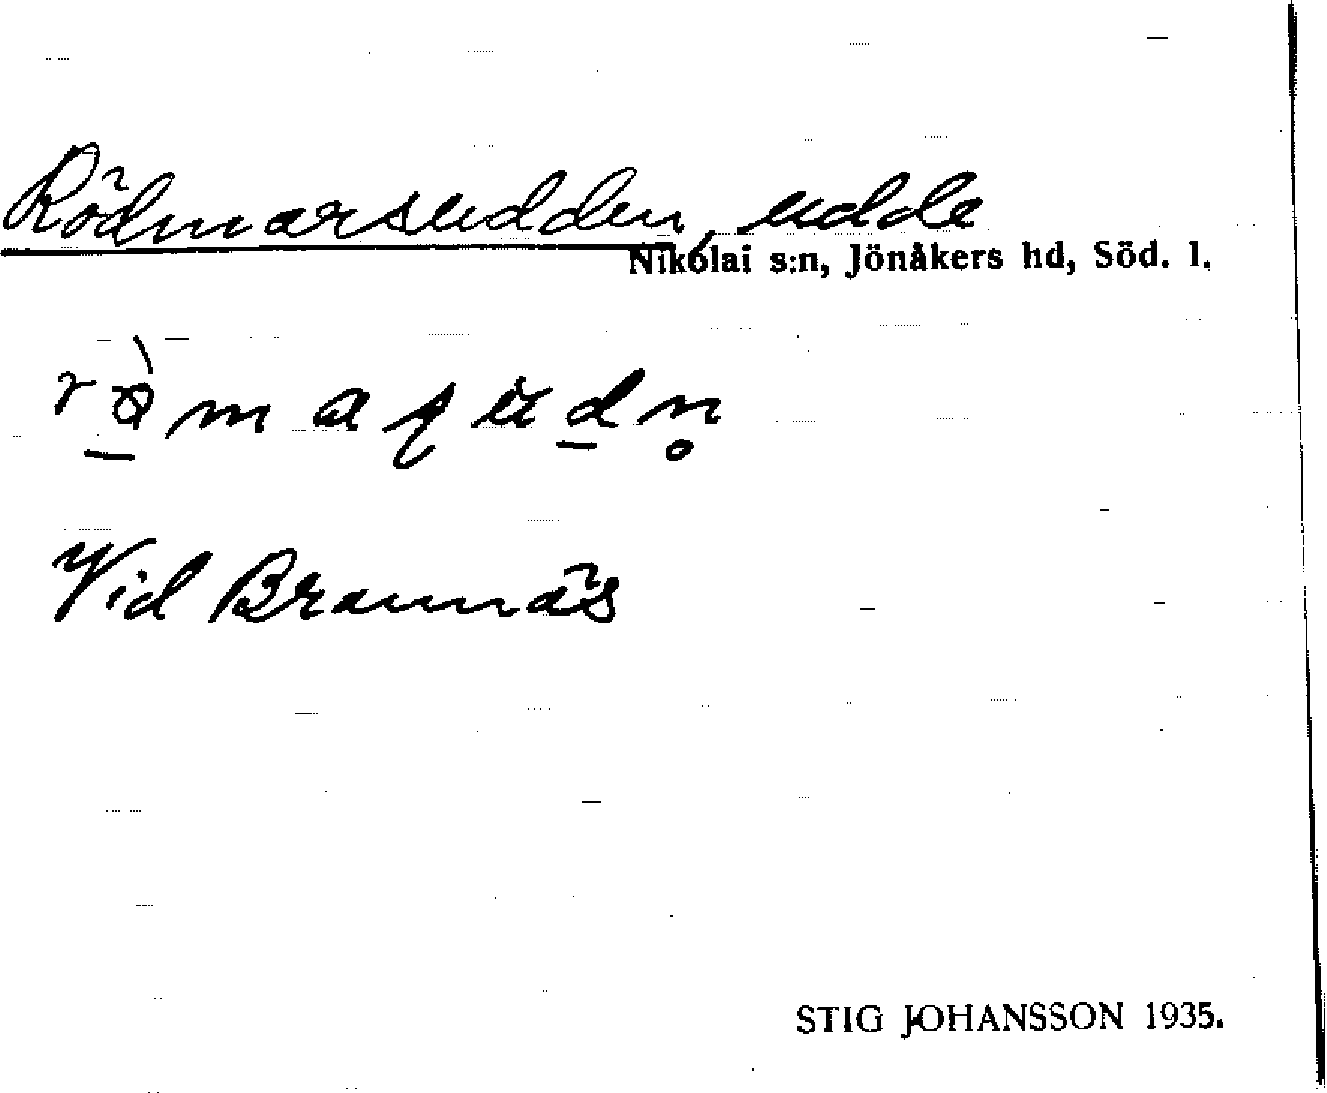 Rödmarsudden, udde
Nikolai s:n, Jönåkers hd, Söd. l.
Vid Brannäs
STIG JOHANSSON 1935.